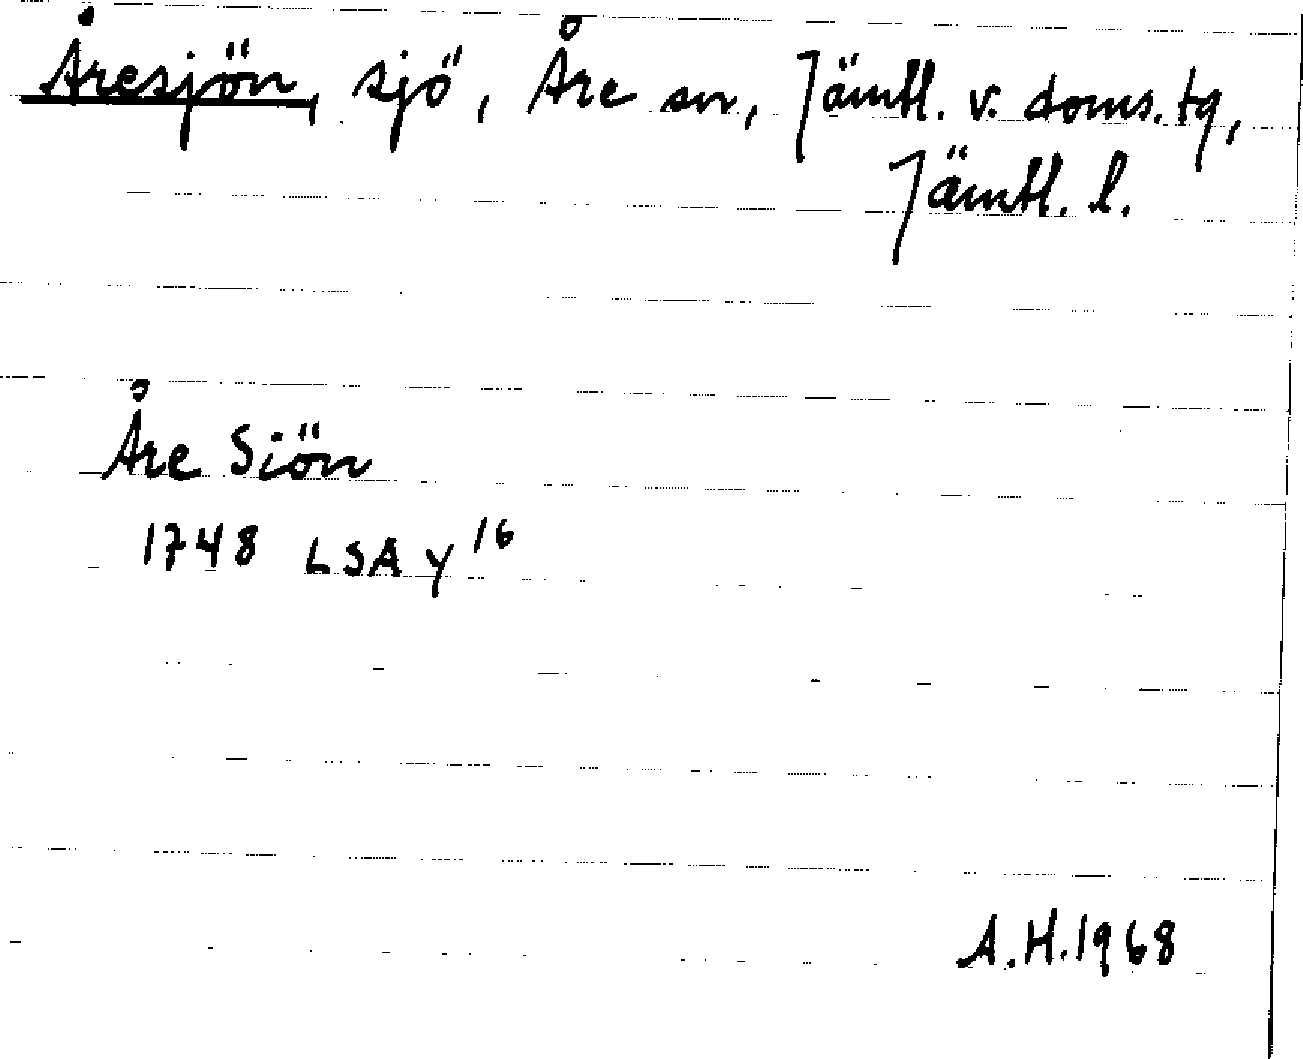 Åresjön, sjö, Åre sn, Jämtl. v. doms. tg,
Jämtl. l.
Åre Siön
1748 LSA Y 16
A.H. 1968